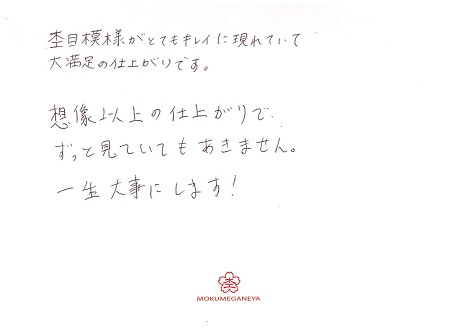 杢目模様がとてもキレイに現れていて
大満足の仕上がりです。
想像以上の仕上がりで
ずっと見ていてもあきません。
一生大事にします!
杢
MOKUMEGANEYA